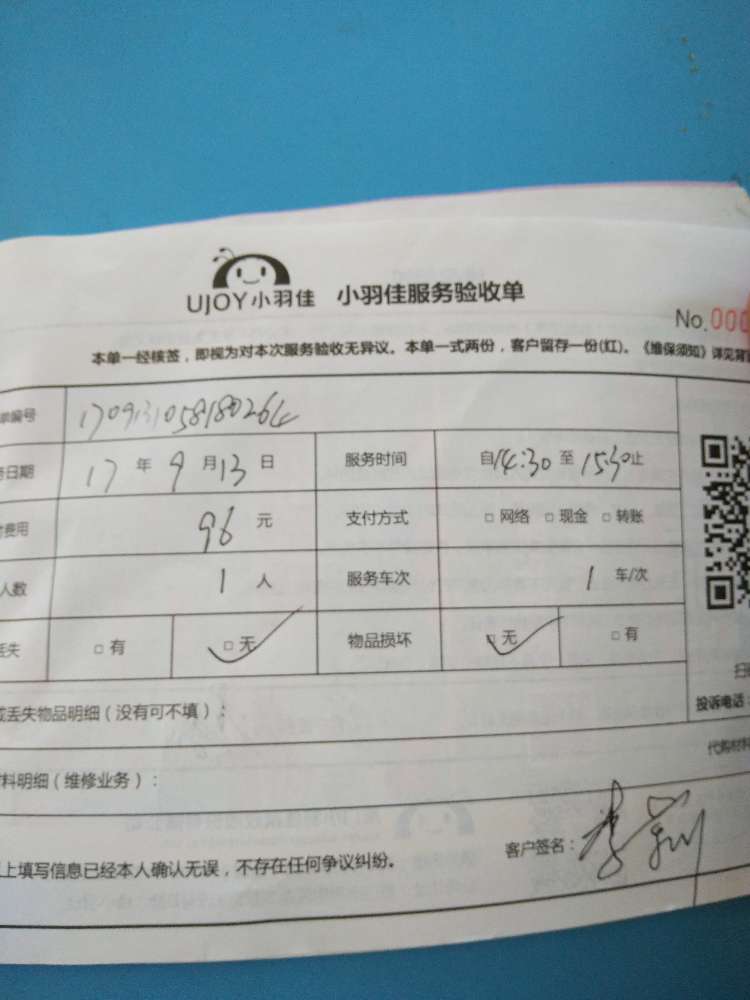 UJOY小羽佳 小羽佳服务验收单
No.000
本单一经核签，即视为对本次服务验收无异议。本单一式两份，客户留存一份(红)。《维保须知》详见背
单编号 1709131058180264
日期 17 年 9 月 13 日 服务时间 自14:30至15:30止
费用 96 元 支付方式 □ 网络 □ 现金 □ 转账
人数 1 人 服务车次 1 车/次
丢失 □ 有 □ 无 物品损坏 □ 无 □ 有
丢失物品明细（没有可不填）：
投诉电话：
料明细（维修业务）：
代购材料
客户签名：
上填写信息已经本人确认无误，不存在任何争议纠纷。